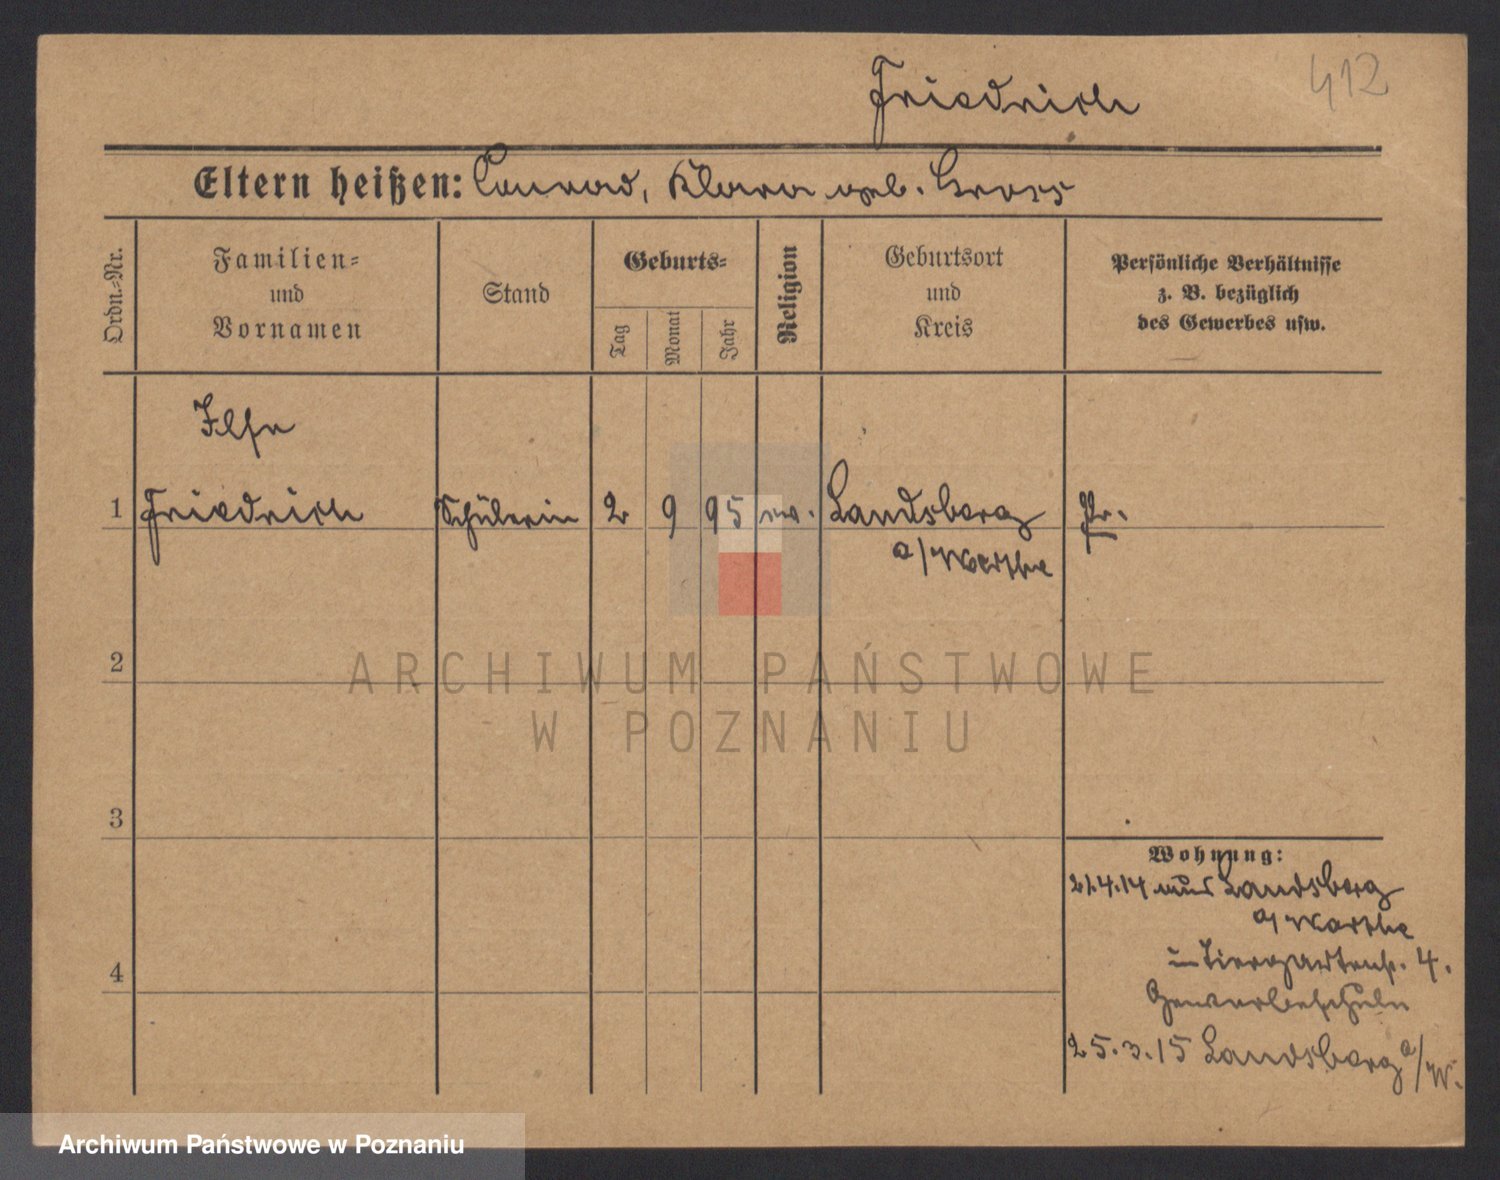 Friedrich
412
Eltern heißen: Conrad, Klara geb. Gross
Ordn.-Nr.
Familien-
und
Vornamen
Stand
Geburts-
Tag
Monat
Jahr
Religion
Geburtsort
und
Kreis
Persönliche Verhältnisse
z. B. bezüglich
des Gewerbes usw.
Ilse
1 Friedrich Schülerin 2 9 95 ev. Landsberg Pr.
a/Warthe
2
3
4
Wohnung:
21.4.14 aus Landsberg
a/Warthe
in Tiergartenstr. 4.
Gewerbeschule
25.3.15 Landsberg a/W.
ARCHIWUM PAŃSTWOWE
W POZNANIU
Archiwum Państwowe w Poznaniu